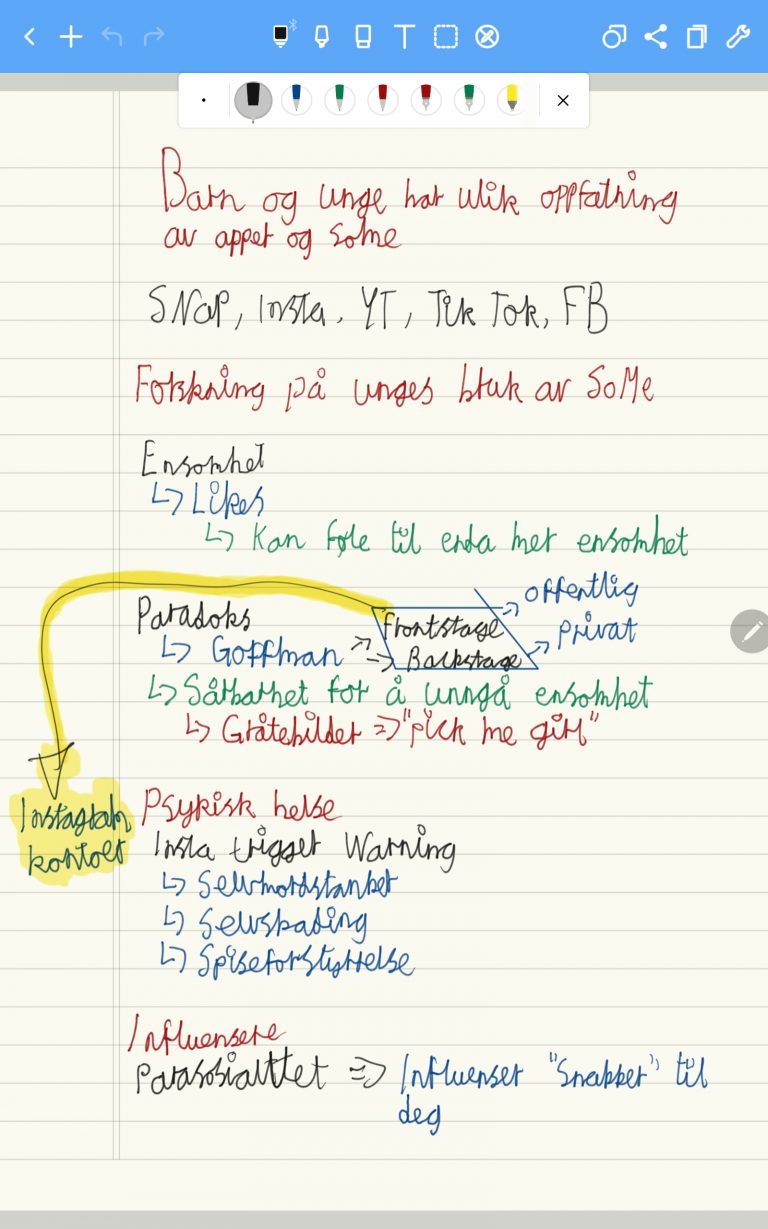 Barn og unge har ulik oppfatning
av apper og some
SNap, Insta, YT, Tik Tok, FB
Forskning på unges bruk av SoMe
Ensomhet
↳ Likes
↳ Kan føle til enda mer ensomhet
Paradoks
↳ Goffman
frontstage
Backstage
→ offentlig
→ privat
↳ Sårbarhet for å unngå ensomhet
↳ Gråtebilder => "pick me girl"
Instagram
kontoer
Psykisk helse
Insta trigger Warning
↳ Selvmordstanker
↳ Selvskading
↳ Spiseforstyrrelse
Influensere
Parasosialitet => Influenser "Snakker" til
deg